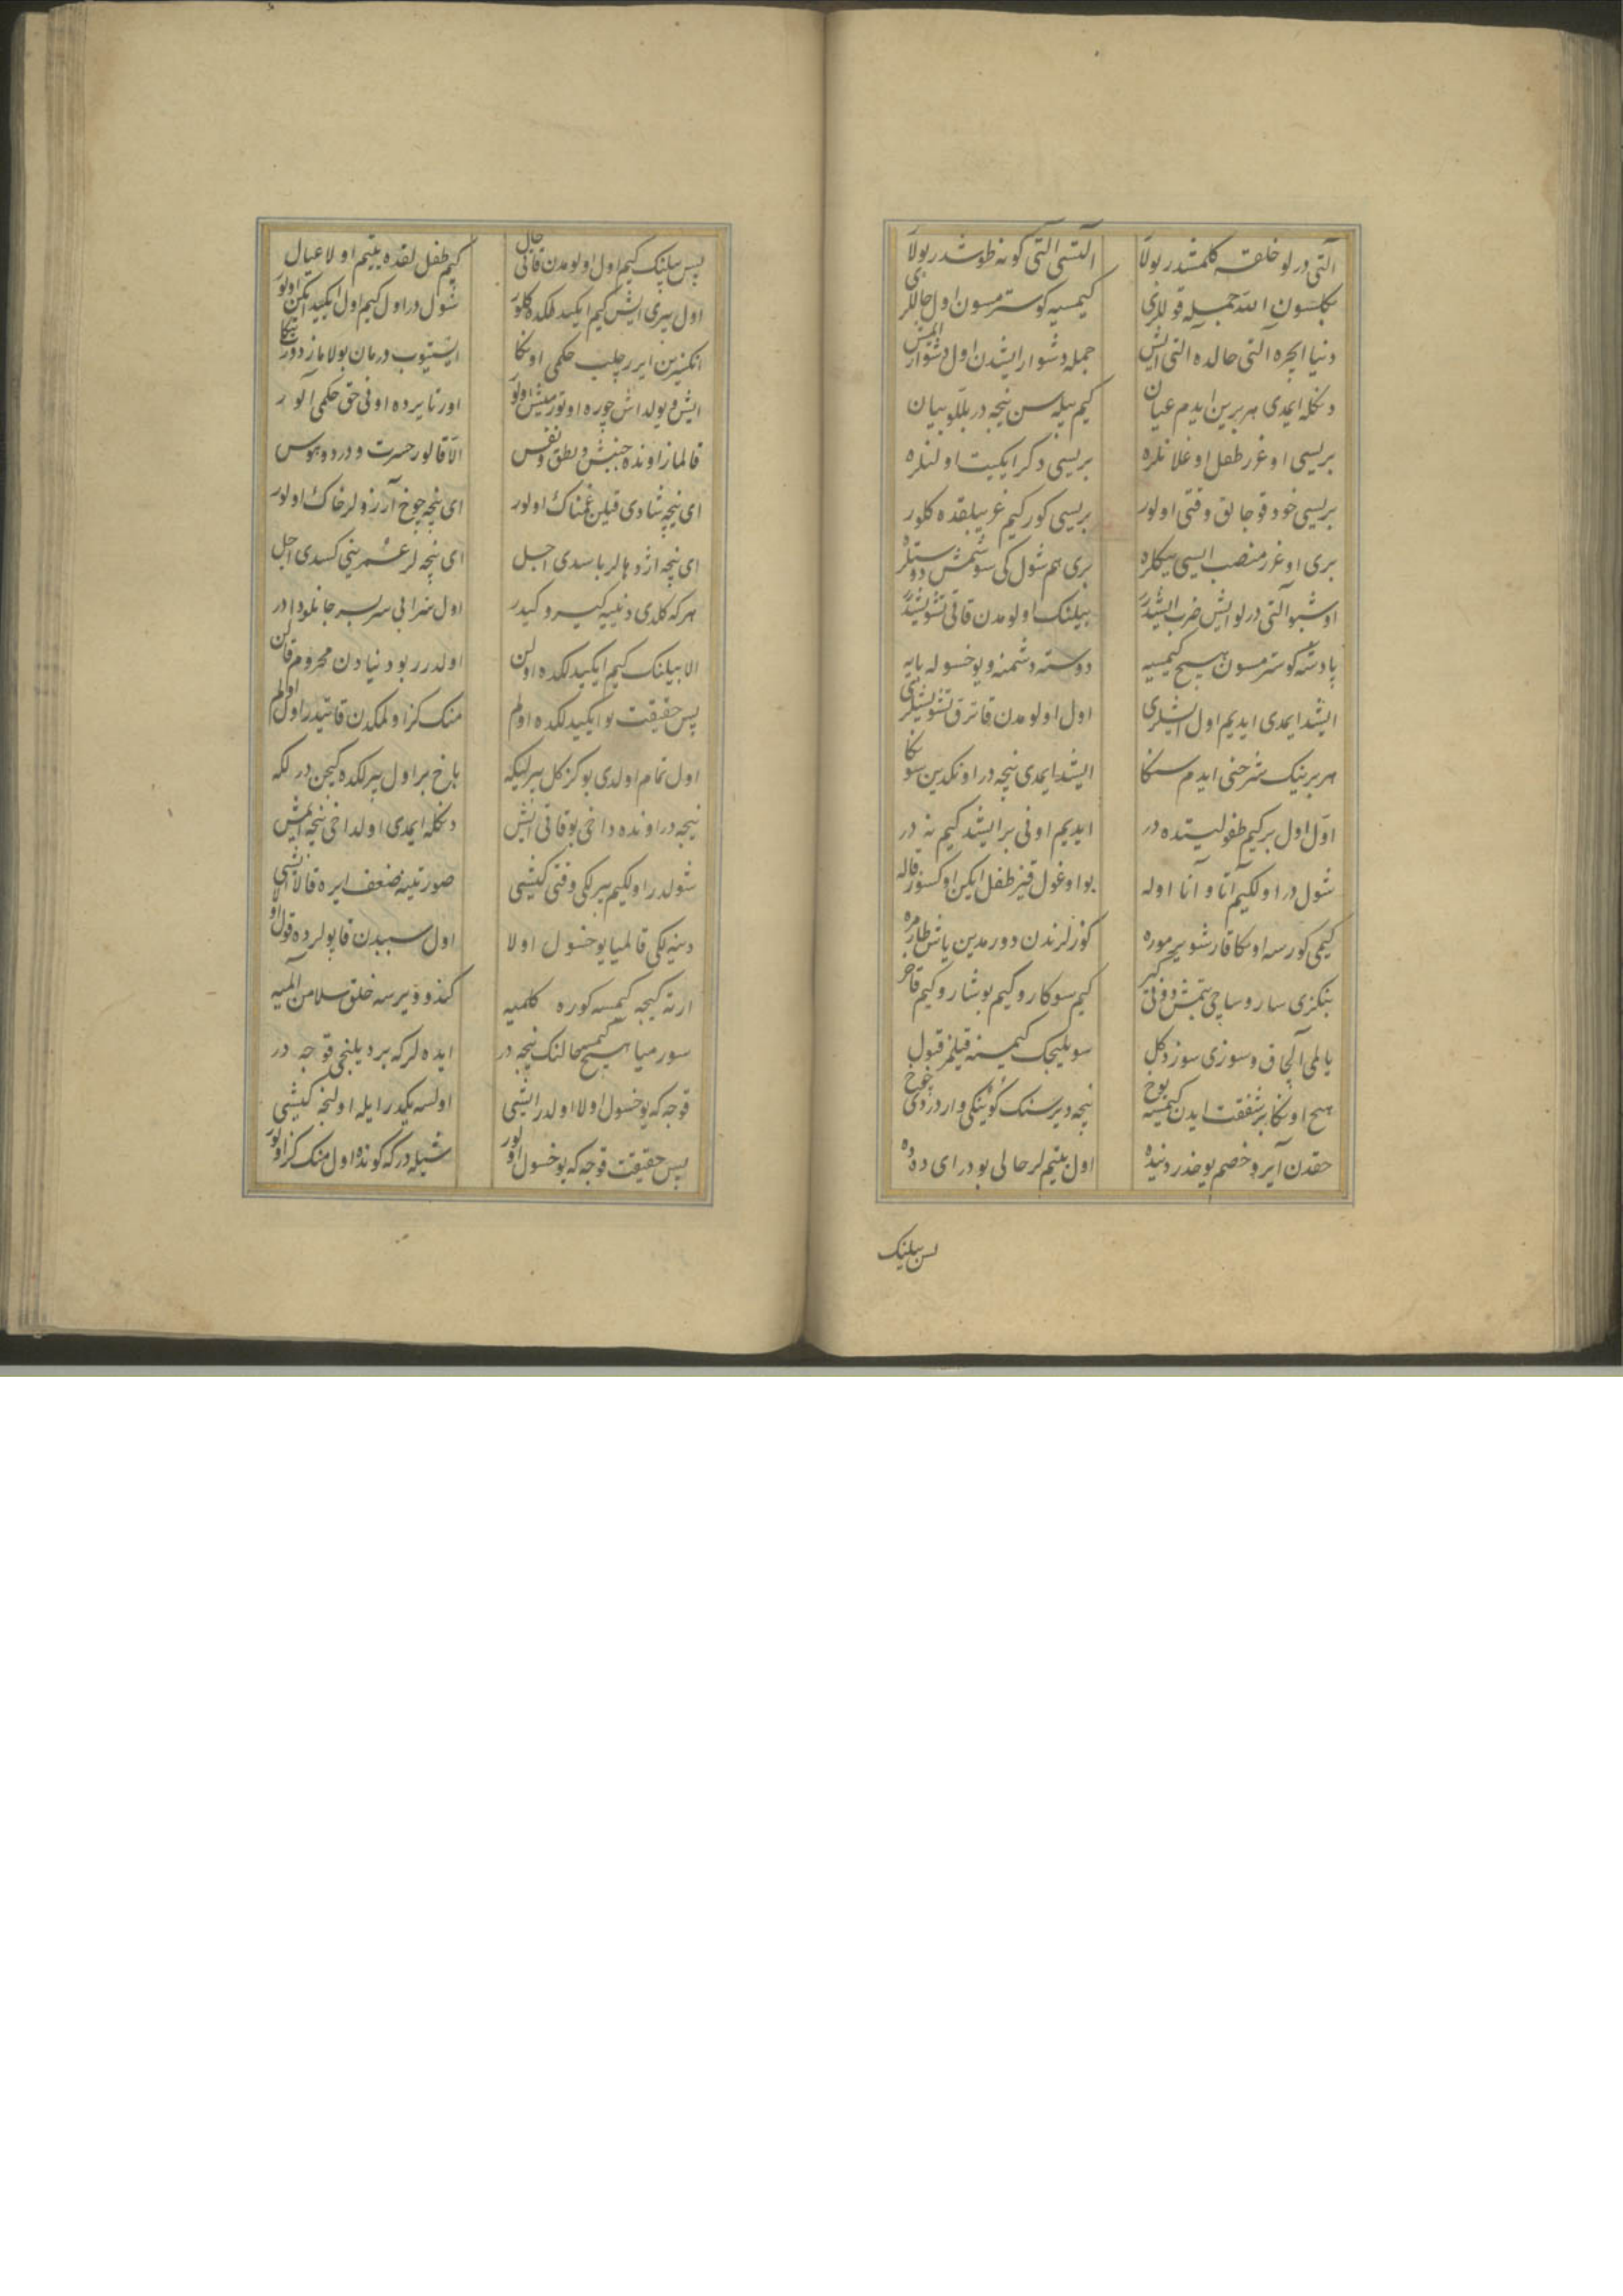 آلتی درلو خلقه کلمشدر بولا آلتسی آلتی کونه طوشدر بولا
بکلسون الله جمله قوللرنی کیمسیه کوسترمسون اول حاللری
دنیا ایچره آلتی حالده التی ایش جمله دشوار ایشدن اول دشوار ایمش
دنکله ایمدی هر برین ایدم عیان کیم بیله سن نیجه در بللو بیان
بریسی اوغرر طفل اوغلانلره بریسی دکر ایکیت اولنلره
بریسی خود قوجالق وقتی اولور بریسی کور کیم غریبلقده کلور
بری اوغرر منصب ایسی بیکلره بری هم شول کی سوشمش دوستلره
اوشبو آلتی درلو ایش ضرب ایشدر بیلنک اولومدن قاتی تشویشدر
پادشه کوسترمسون هیچ کیمسیه دوسته دشمنه و یوخسوله بایه
ایشد ایمدی ایدیم اول ایشلری اول اولومدن قاترق تشویشلری
هر برینک شرحنی ایدم سنکا ایشد ایمدی نیجه در اونکدین سونکا
اول اول بر کیم طفولیتده در ایدیم اونی بر ایشد کیم نه در
شول در اولکیم آتا و آنا اوله بو اوغول قیز طفل ایکن اوکسوز قاله
کیمی کورسه اونکا قارشو یرموره کوزلرندن دورمدین یاش طامره
بنکزی سارو ساچی بتمش و فی کیر کیم سوکارو کیم بوشارو کیم قاخر
یالمی آلچاق و سوزی سوز دکل سویلیجک کیمسنه قیلمز قبول
هیچ اونکا بر شفقت ایدن کیمسه یوخ نیجه دیرسنک کوینکی وار دردی چوخ
حقدن آیرو خصم یوخدر دنیده اول یتیملر حالی بودر ای دده
پس بیلنک
پس بیلنک کیم اول اولومدن قاتی حال کیم طفل لقده یتیم اولا عیال
اول بیری ایش کیم ایکیدلکده کلور شول در اول کیم اول ایکید ایکن اولور
انکسزین ایرر چلب حکمی اونکا ایستیوب درمان بولاماز دور بنکا
ایش و یولداش چوره اوتورمیش اولور اورتا یرده اونی حق حکمی آلور
قالماز اونده جنبش و نطق و نفس الا قالور حسرت و درد و هوس
ای نیجه شادی قیلن غمناک اولور ای نیجه چوخ آرزولر خاک اولور
ای نیجه اژدهالر باسدی اجل ای نیجه لر عمرینی کسدی اجل
هر که کلدی دنییه کیرو کیدر اول شرابی سربسر جانلو دادر
الا بیلنک کیم ایکیدلکده اولن اولدرر بو دنیادن محروم قالن
پس حقیقت بو ایکیدلکده اولم منک کز اولمکدن قاتیدر اول اولم
اول تمام اولدی بو کز کل پیرلیکه باخ بر اول پیرلکده کیچن درلکه
نیجه در اونده داخی بو قاتی ایش دنکله ایمدی اولداخی نیجه ایمش
شولدر اولکیم پیرلکی وقتی کیشی صورتینه ضعف ایره قالا ایشی
دینه لکی قالمیا یوخسول اولا اول سببدن قاپولرده قول اولا
ارته کیجه کیمسه کوره کلمیه کندو ویرسه خلق سلامن آلمیه
سورمیا هیچ کیمسه حالنک نیجه در ایده لر که بر دیلنجی قوجه در
قوجه که یوخسول اولا اولدر ایشی اولسه یکدر ایله اولنجه کیشی
پس حقیقت قوجه که یوخسول اولور شیله در که کونده اول منک کز اولور